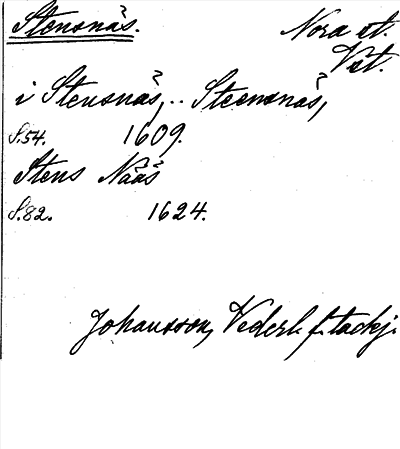 Stensnäs. Nora st.
Vst.
i Stensnäs, .. Steensnäs,
S.54. 1609.
Stens Nääs
S.82. 1624.
Johansson, Vederl. f. tackj.